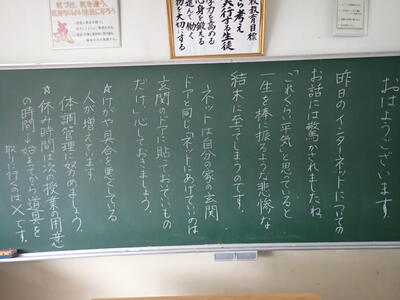 教育目標
ら考え
実行する生徒
学力を高める
心身を鍛える
進んで働く
物を大切にする
おはようございます。
昨日のインターネットについての
お話には驚かされましたね。
「これくらい平気」と思っていると
一生を棒に振るような悲惨な
結末に至ってしまうのです。
ネットは自分の家の玄関
ドアと同じ。ネットにあげていいのは
玄関のドアに貼っておいていいもの
だけ。」心しておきましょう。
☆けがや具合を悪くしている
人が増えています。
体調管理に努めましょう。
☆休み時間は次の授業の用意
の時間→始まってから道具を
取りに行くのは×です。